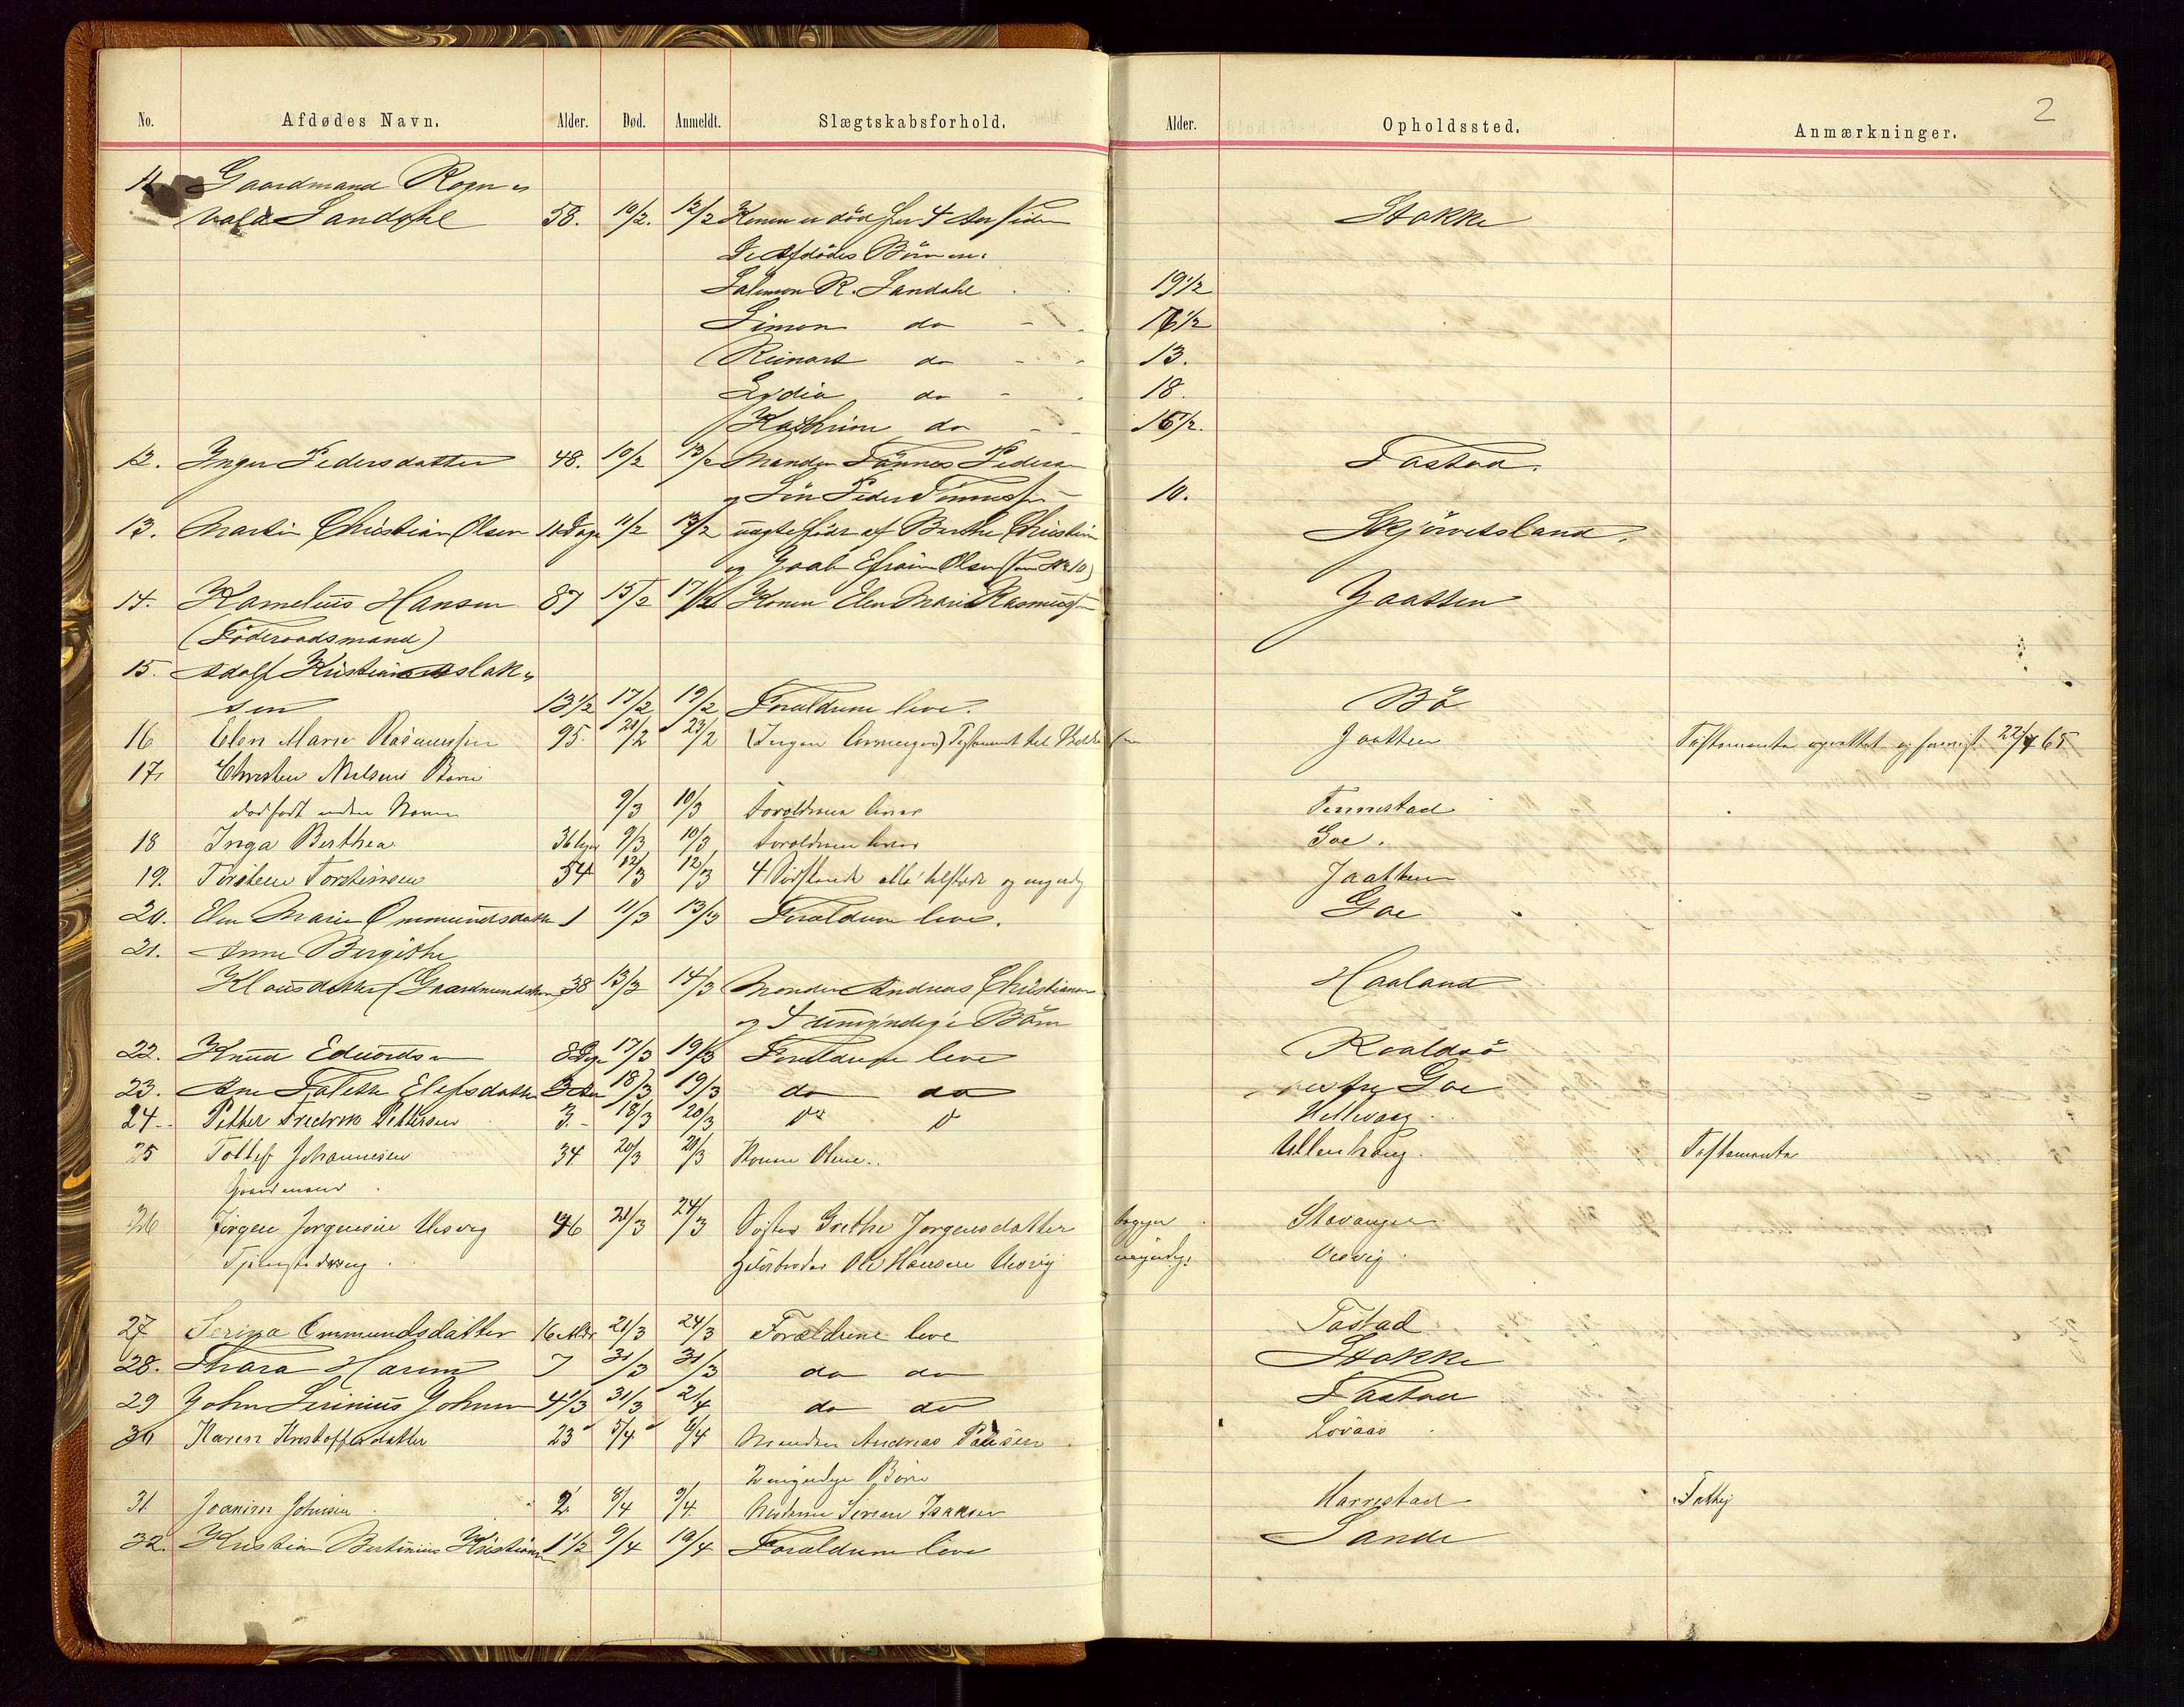 2
No. Afdødes Navn. Alder. Død. Anmeldt. Slægtskabsforhold. Alder. Opholdssted. Anmærkninger.
11 Gaardmand Rogn-
vald Sandahl 58. 10/2. 12/2 Konen er død for 4 Aar siden Stokke
De Afdødes Børn er:
Salomon R. Sandahl 19 1/2
Simon do 16 1/2
Reinart do 13.
Lydia do 18.
Kathrine do 15 1/2.
12. Inger Pedersdatter 48. 10/2 13/2 Manden Tønnes Pedersen Tastad.
og Søn Peder Tønnessen 10.
13. Martin Christian Olsen 11 Dage 11/2 13/2 uægtefødt af Berthe Christine Skjørvetsland.
og Joab Efraim Olsen (se No 10)
14. Kornelius Hansen 87 15/2 17/2 Konen Elen Marie Rasmussen Jaatten
(Føderaadsmand)
15. Adolf Kristian Aslak-
sen 13 1/2 17/2 19/2 Forældrene leve. Bø
16 Elen Marie Rasmussen 95. 21/2 23/2 (Ingen Arvinger) Testament Jaatten Testamente oprettet og 22/4 65
17. Christen Nielsens Barn
dødfødt uden Navn 9/3 10/3 Forældrene lever Tennestad
18 Inga Berthea 9/3 10/3 Forældrene lever Goe.
19. Torsten Torstensen 54 12/3 12/3 4 Sødskende alle tilstede og myndig Jaatten
20. Elen Marie Ommundsdatter 1 11/3 13/3 Forældrene leve. Goe
21. Anne Bergithe
Klausdatter (Gaardmandskone) 38 13/3 14/3 Manden Andreas Christiansen Haaland
og 4 umyndige Børn
22. Knud Edvardsen 8 Dage 17/3 19/3 Forældrene leve Roaldsø
23. Ane Malene Elefsdatter 3 Aar 18/3 19/3 do do Goe
24. Petter Fredrik Pettersen 3. 18/3 20/3 do do Hellevaag.
25 Tollef Johannesen 34 20/3 21/3 Konen Oline. Ullenhaug. Testamente
Gaardmand.
26 Jørgen Jørgensen Viesvig 46 21/3 24/3 Søster Grethe Jørgensdatter Stavanger.
Tjenestedreng. Halvbroder Ole Hansen Viesvig myndig. Viesvig.
27 Serina Ommundsdatter 16 21/3 24/3 Forældrene leve Tastad
28. Thara Harim 7 31/3 31/3 do do Stokke
29 John Serinius Johnsen 4 1/3 31/3 2/4 do do Tastad
30 Karen Kristoffersdatter 23 5/4 6/4 Manden Andreas Paulsen Lovaas
2 umyndige Børn
31. Joanim Johnsen 2 8/4 9/4. Moderen Serene Isaksen Harestad Fattig
32. Kristian Bertinius Kristiansen 1 1/2 9/4 10/4 Forældrene leve Sande